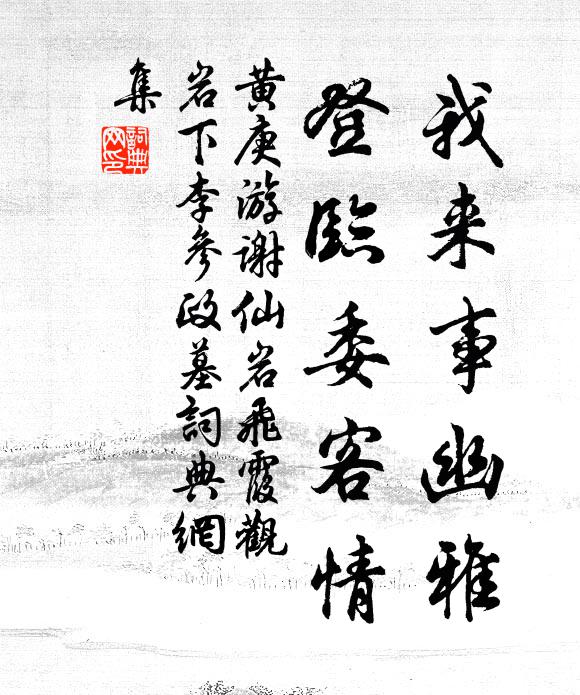 我来事幽雅
登臨委客情
黄庚游谢仙岩飛霞觀
岩下李参政墓詞典網
集
詞典
网印